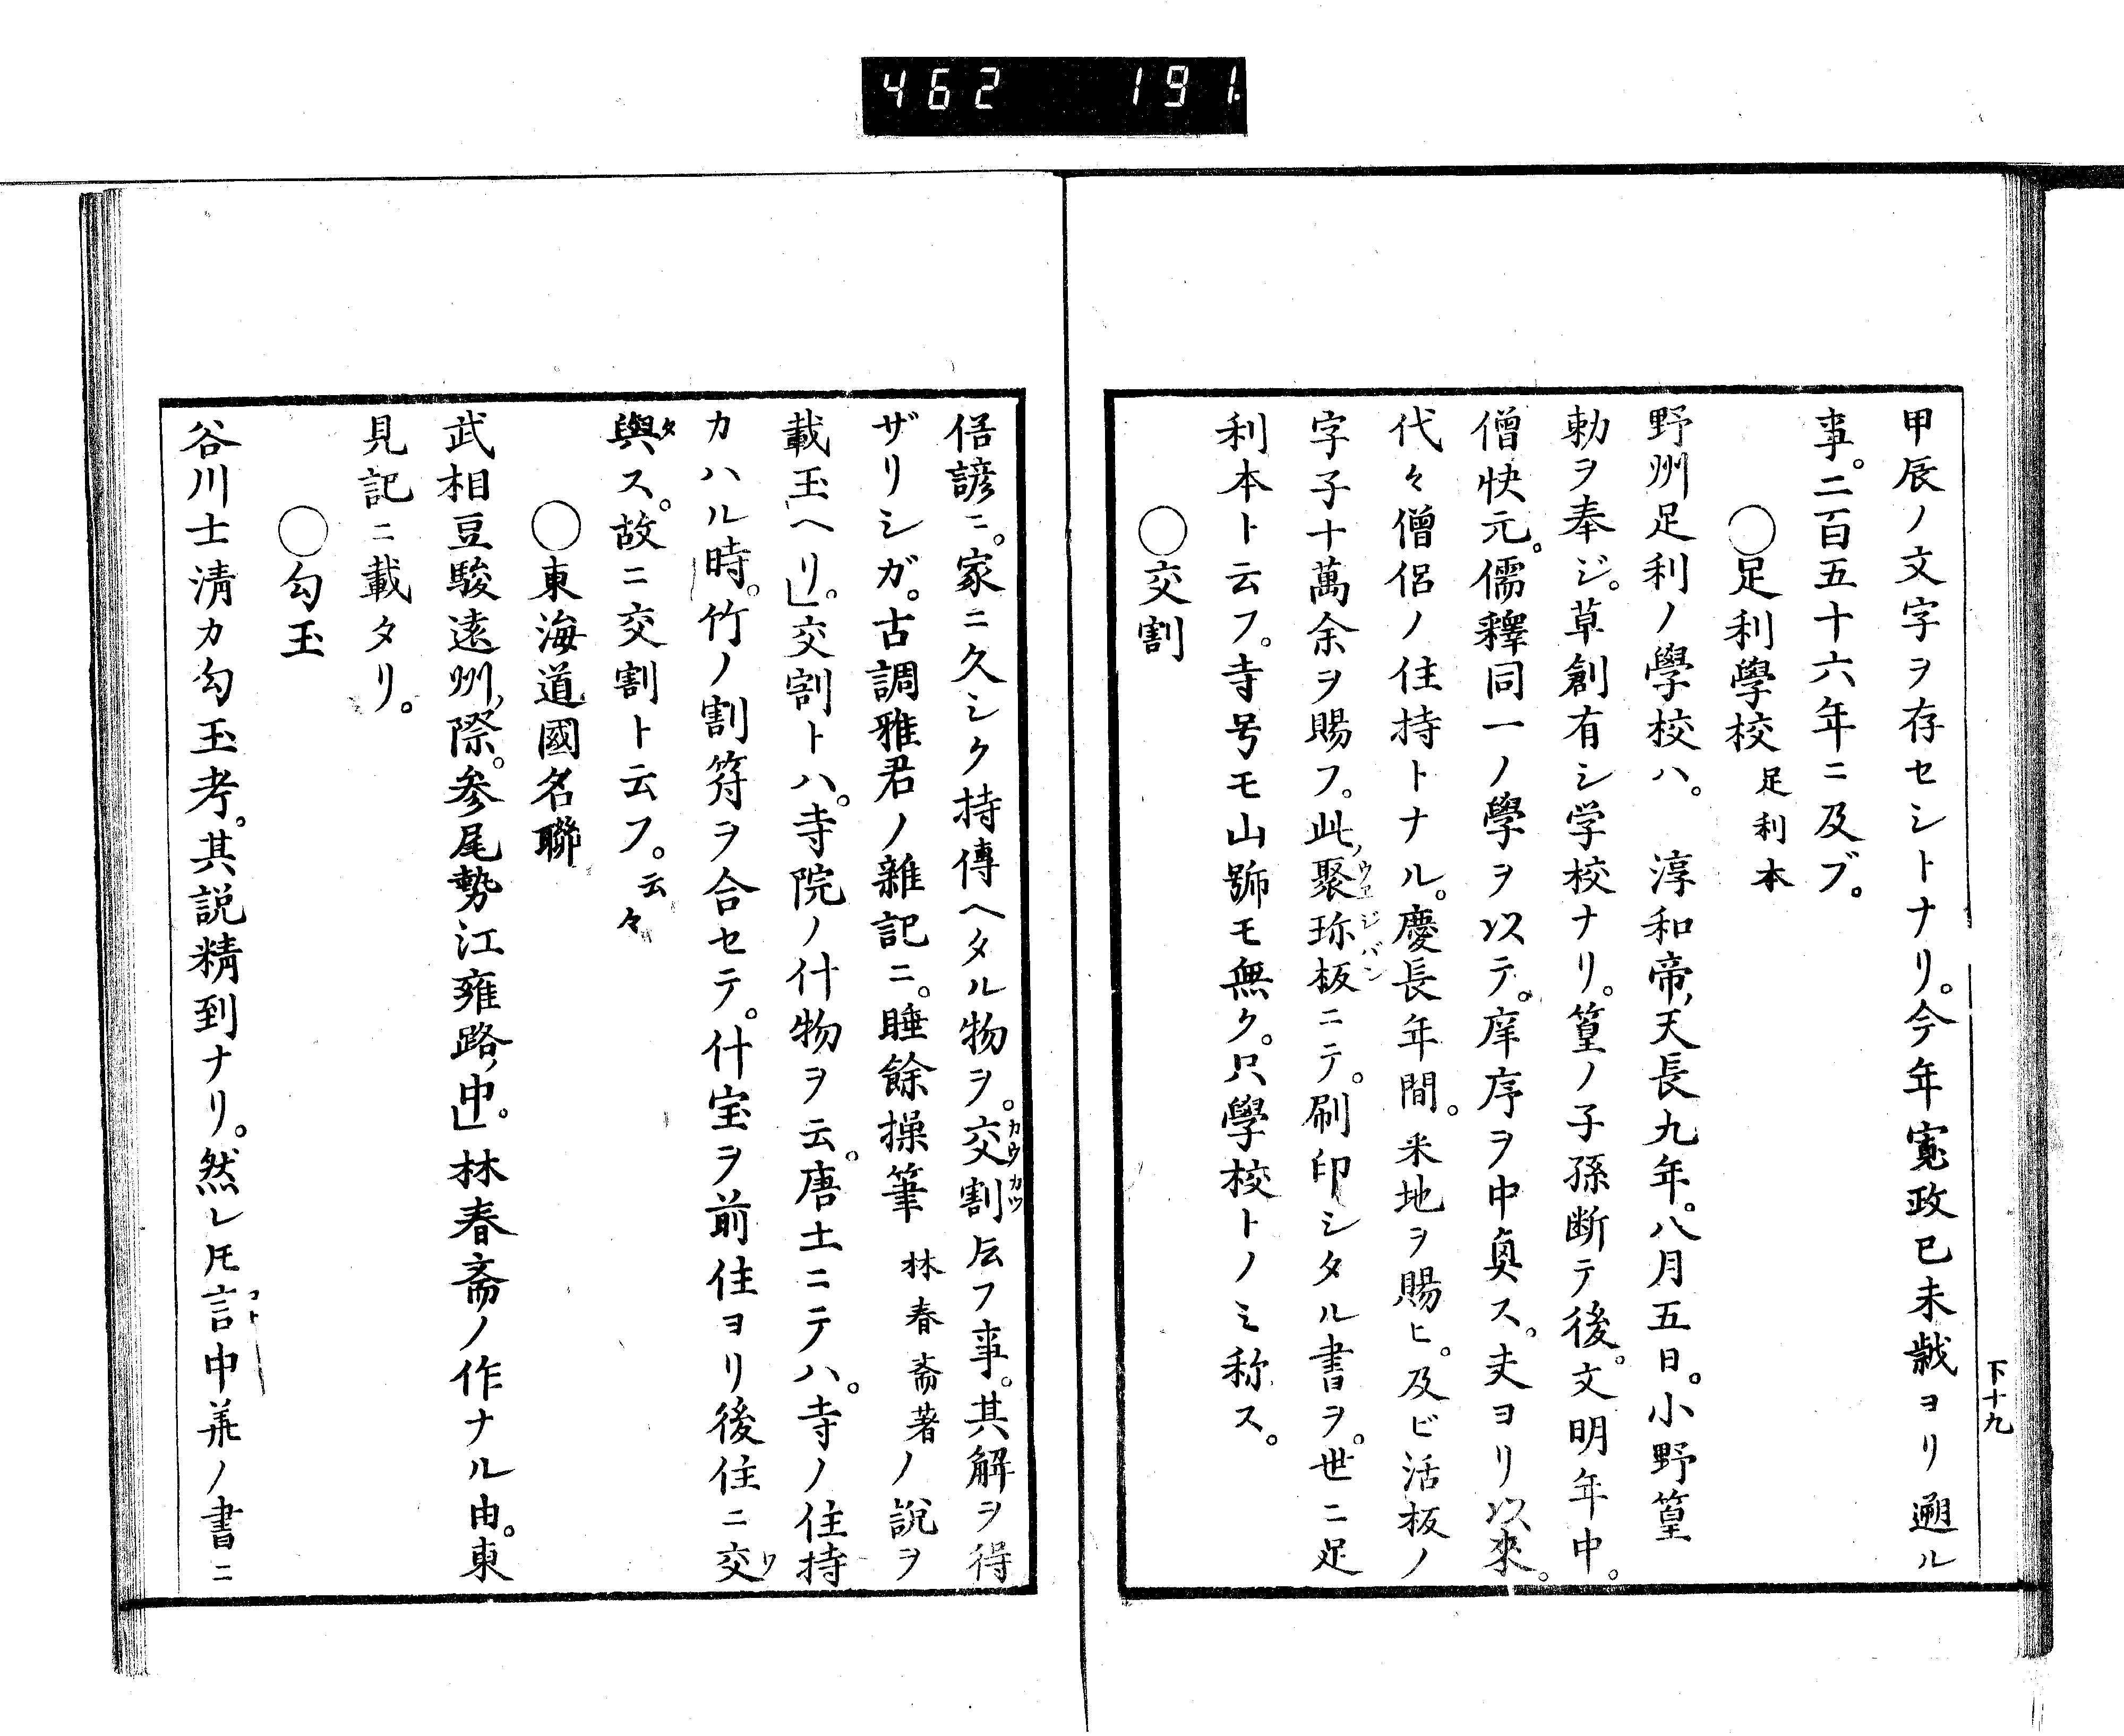 462 191.
下十九
甲辰ノ文字ヲ存セシトナリ。今年寛政已未歳ヨリ遡ル
事。二百五十六年ニ及ブ。
○足利學校 足利本
野州足利ノ學校ハ。 淳和帝ノ天長九年。八月五日。小野篁
勅ヲ奉ジ。草創有シ学校ナリ。篁ノ子孫断テ後。文明年中。
僧快元。儒釋同一ノ學ヲ以テ。庠序ヲ中奥ス。夫ヨリ以來。
代々僧侶ノ住持トナル。慶長年間。釆地ヲ賜ヒ。及ビ活板ノ
字子十萬余ヲ賜フ。此ノ聚珎板ニテ。刷印シタル書ヲ。世ニ足
ウエジバン
利本ト云フ。寺号モ山號モ無ク。只學校トノミ称ス。
○交割
俗諺ニ。家ニ久シク持傳ヘタル物ヲ。交割ト云フ事。其解ヲ得
カウカツ
ザリシガ。古調雅君ノ雜記ニ。睡餘操筆 林春斎著ノ説ヲ
載玉ヘリ。交割トハ。寺院ノ什物ヲ云。唐土ニテハ。寺ノ住持
カハル時。竹ノ割符ヲ合セテ。什宝ヲ前住ヨリ後住ニ交
ワ
與ス。故ニ交割ト云フ。云々
タ
○東海道國名聯
武相豆駿遠州ノ際。参尾勢江雍路ノ中。林春斎ノ作ナル由。東
見記ニ載タリ。
○勾玉
谷川士清カ勾玉考。其説精到ナリ。然レ𪜈言中華ノ書ニ
コト